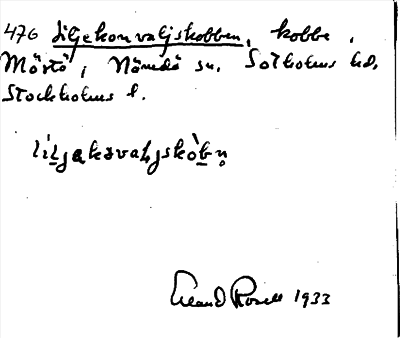 476 Liljekonvaljskobben, kobbe,
Mörtö, Nämdö sn. Sotholms hd,
Stockholms l.
líljakəvaljskòbn̥
Erland Rosell 1933